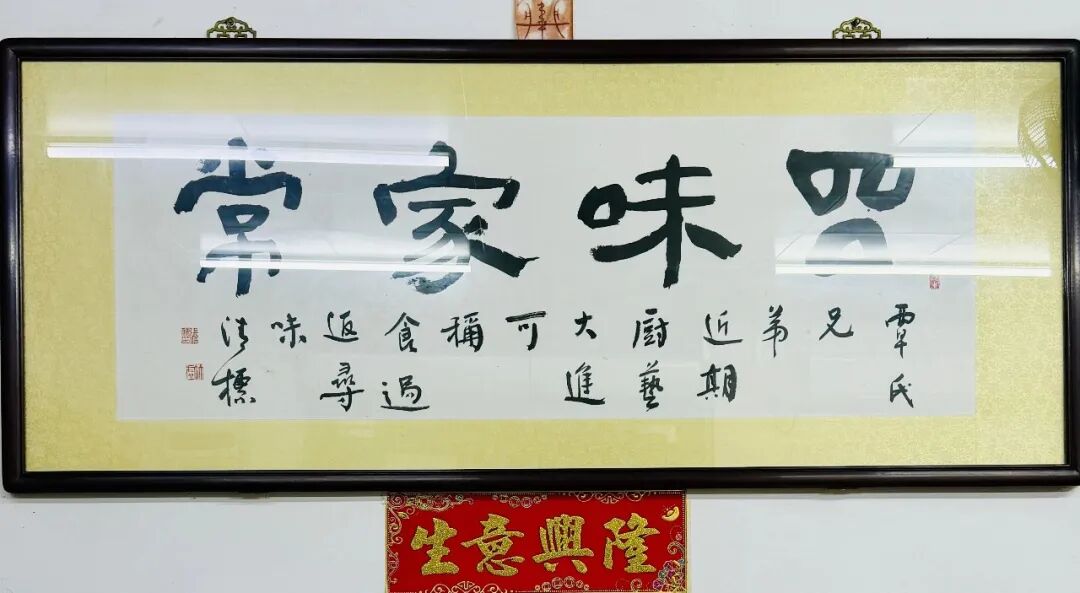 品味家常
覃氏
兄
弟
近期
厨藝
大進
可
稱
食過
返尋
味
清標
生意興隆